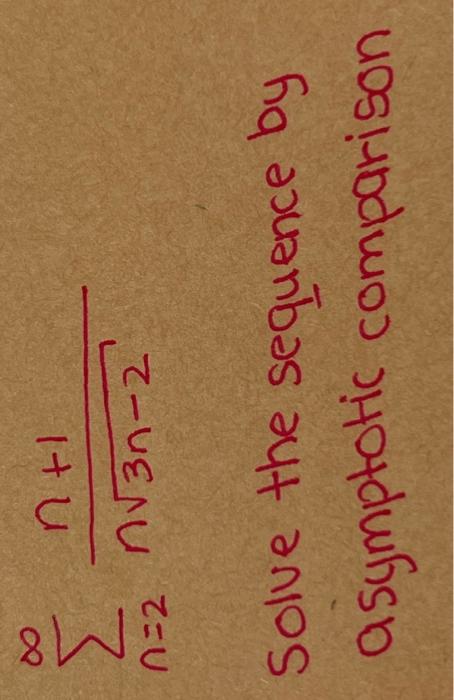 ∞
∑ n+1
n=2 n√3n-2
Solve the sequence by
asymptotic comparison